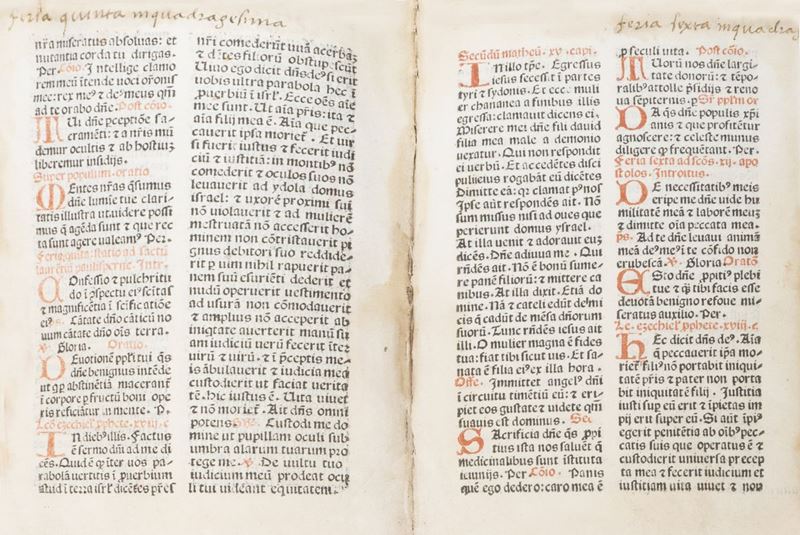 feria quinta in quadragesima
nr̃a miseratus absoluas: et
nutantia corda tu dirigas.
Per. Cōio. Intellige clamo
rem meū intende voci or̄onis
mee: rex me⁹ ⁊ de⁹ meus qm̄
ad te orabo dn̄e. Post cōio.
Tui dn̄e perceptiōe sa-
cramēti: ⁊ a nr̄is mū
demur ocultis ⁊ ab hostiuꝫ
liberemur insidijs.
Super populum. oratio
Mentes nr̄as q̄sumus
dn̄e lumīe tue clari-
tatis illustra ut uidere possi
mus q̄ agēda sunt ⁊ que rec
ta sunt agere valeam⁹ Per.
Feria quīta. statio ad sāctū
laurētiū Intr.
Cōfessio ⁊ pulchritu
do ī ꝯspectu ei⁹ scītas
⁊ magnificētia ī scīficatiōe
ei⁹. ps. Cātate dn̄o cāticū no
uum cātate dn̄o oīs terra.
v. Gloria. Oratio.
Deuotionē ppl̄i tui q̄s
dn̄e benignus intēde
ut q̇ ꝑ abstinētiā macerant̄
ī corpore ꝑ fructū boni ope
ris reficiātur in mente. P.
Lec̄ ezechiel̄ ꝓphete. xviij. c.
In dieb⁹ illis. Factus
ē sermo dn̄i ad me di
cēs. Quid ē q̇ īter vos pa-
rabolā vertitis ī ꝓuerbium
istud ī terra isrl̄ dicētes pr̄es
nr̄i comederūt uvā acerbāꝫ
⁊ dētes filiorū obstupescūt
Uiuo ego dicit dn̄s de⁹ si erit
vobis ultra parabola hec ī
ꝓuerbiū ī isrl̄. Ecce oēs aīe
mee sunt. Ut aīa pr̄is: ita ⁊
aīa filij mea ē. Aīa que pec-
cauerit ipsa moriet̄. Et vir
si fuerit iustus ⁊ fecerit iudi
ciū ⁊ iustitiā: in montib⁹ nō
comederit ⁊ oculos suos nō
leuauerit ad ydola domus
israel: ⁊ uxorē proximi sui
nō violauerit ⁊ ad mulierē
mēstruatā nō accesserit ho-
minem non cōtristauerit pi
gnus debitori suo reddide-
rit ꝑ uim nihil rapuerit pa-
nem suū esuriēti dederit ⁊
nudū operuerit uestimento
ad usurā non cōmodauerit
⁊ amplius nō acceperit ab
iniqtate auerterit manū su
am iudiciū uerū fecerit īter
virū ⁊ uirū. ⁊ ī p̄ceptis me-
is ābulauerit ⁊ iudicia mea
custodierit ut faciat verita
tē. hic iustus ē. Uita viuet
⁊ nō moriet̄. Ait dn̄s omni
potens. Custodi me do
mine ut pupillam oculi sub
umbra alarum tuarum pro
tege me. v. De vultu tuo
iudicium meū prodeat ocu
li tui videant equitatem.
feria sexta in quadra
Secūdū matheū. xv. capi.
In illo tp̄e. Egressus
iesus secessit ī partes
tyri ⁊ sydonis. Et ecce muli
er chananea a finibus illis
egressa: clamauit dicens ei.
Miserere mei dn̄e fili dauid
filia mea male a demonio
vexatur. Qui non respondit
ei verbū. Et accedētes disci
puli eius rogabāt eū dicētes
Dimitte eā: q̇ clamat p⁹ nos
Ipse aut respondēs ait. Nō
sum missus nisi ad oues que
perierunt domus ysrael.
At illa venit ⁊ adorauit euꝫ
dicēs. Dn̄e adiuua me. Qui
rn̄dēs ait. Nō ē bonū sume-
re panē filiorū: ⁊ mittere ca
nibus. At illa dixit. Etiā do
mine. Nā ⁊ catelli edūt de mi
cis q̄ cadūt de mēsa dn̄orum
suorū. Tunc rn̄dēs iesus ait
illi. O mulier magna ē fides
tua: fiat tibi sicut vis. Et sa-
nata ē filia ei⁹ ex illa hora.
Offe. Immittet angel⁹ dn̄i
ī circuitu timētiū eū: ⁊ eri-
piet eos gustate ⁊ videte qm̄
suauis est dominus. Sec̄
Sacrificia dn̄e q̄s ꝓpi
tius ista nos saluēt q̄
medicinalibus sunt īstituta
ieiunijs. Per. Cōio. Panis
quē ego dedero: caro mea ē
ꝓ seculi vita. Post cōio.
Tuorū nos dn̄e largi-
tate donorū: ⁊ tēpo-
ralib⁹ attolle p̄sidijs ⁊ reno
ua sempiternis. p. Sr̄ ppl̄m or̄
Da q̄s dn̄e populis xp̄i
anis ⁊ que profitētur
agnoscere: ⁊ celeste munus
diligere q̄ frequētant. Per.
Feria sexta ad scōs. xij. apo
stolos. Introitus.
De necessitatib⁹ meis
eripe me dn̄e vide hu
militatē meā ⁊ laborē meuꝫ
⁊ dimitte oīa peccata mea.
ps. Ad te dn̄e leuaui animā
meā de⁹ me⁹ ī te cōfido non
erubescā. v. Gloria Oratō
Esto dn̄e ꝓpiti⁹ plebi
tue ⁊ q̄ tibi facis esse
deuotā benigno refoue mi-
seratus auxilio. Per.
Lc̄. ezechiel̄ ꝓphete. xviij. c.
Hec dicit dn̄s de⁹. Aīa
q̄ peccauerit ipa mo-
riet̄ fili⁹ nō portabit iniqui-
tatē pr̄is ⁊ pater non porta
bit iniquitatē filij. Justitia
iusti sup eū erit ⁊ īpietas im
pij erit super eū. Si aūt īpi⁹
egerit penitētiā ab oīb⁹ pec-
catis suis que operatus ē ⁊
custodierit universa precep
ta mea ⁊ fecerit iudicium et
iustitiam vita viuet ⁊ non